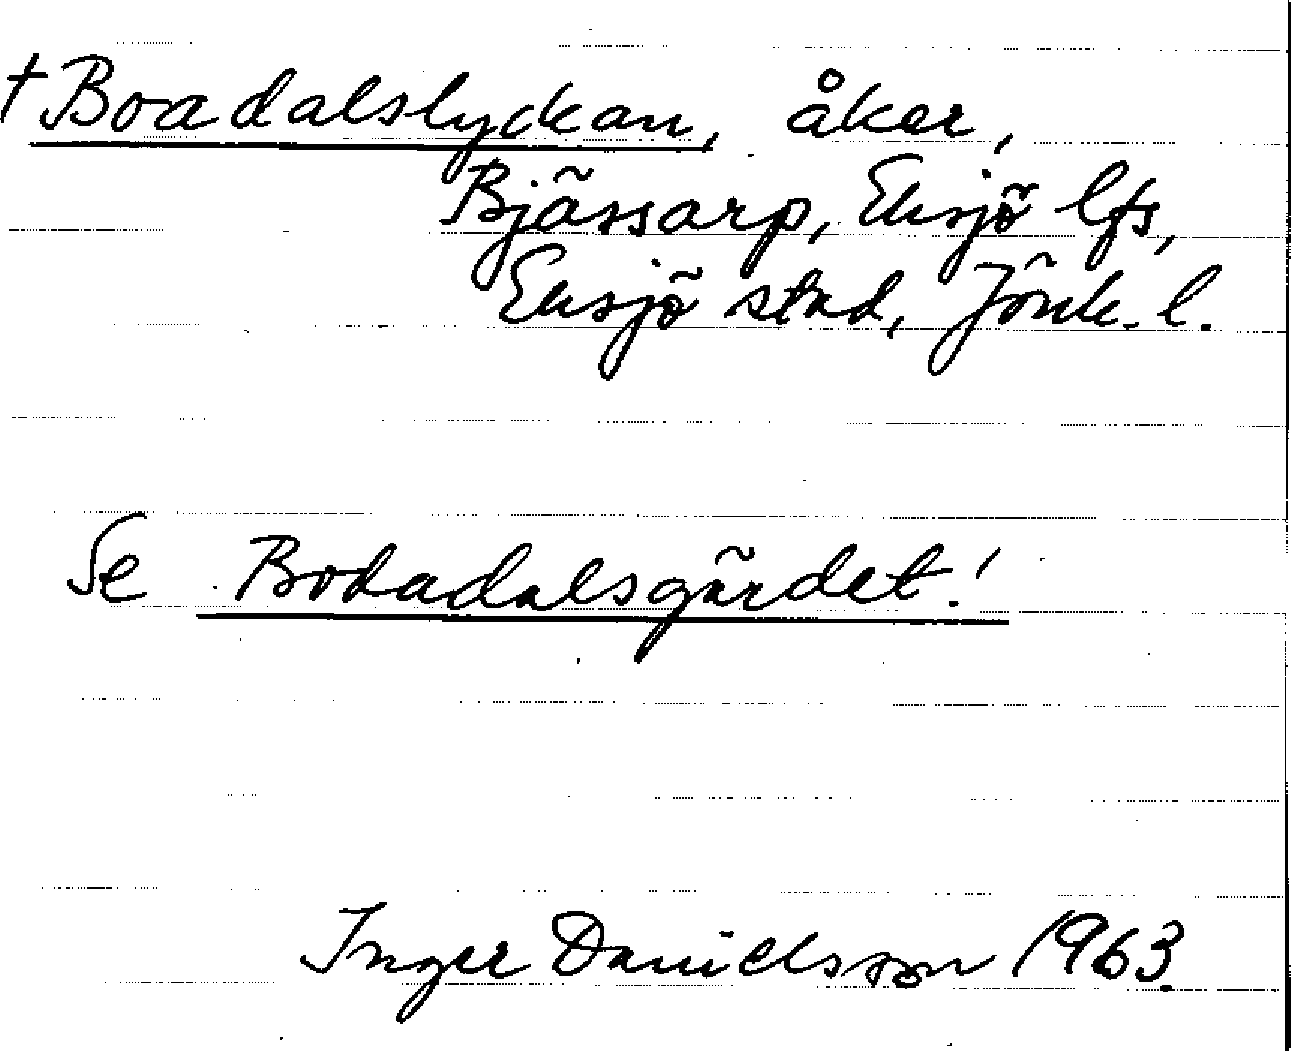 † Boadalslyckan, åker,
Bjässarp, Eksjö lfs,
Eksjö stad, Jönk. l.
Se Bodadalsgärdet!
Inger Danielsson 1963.